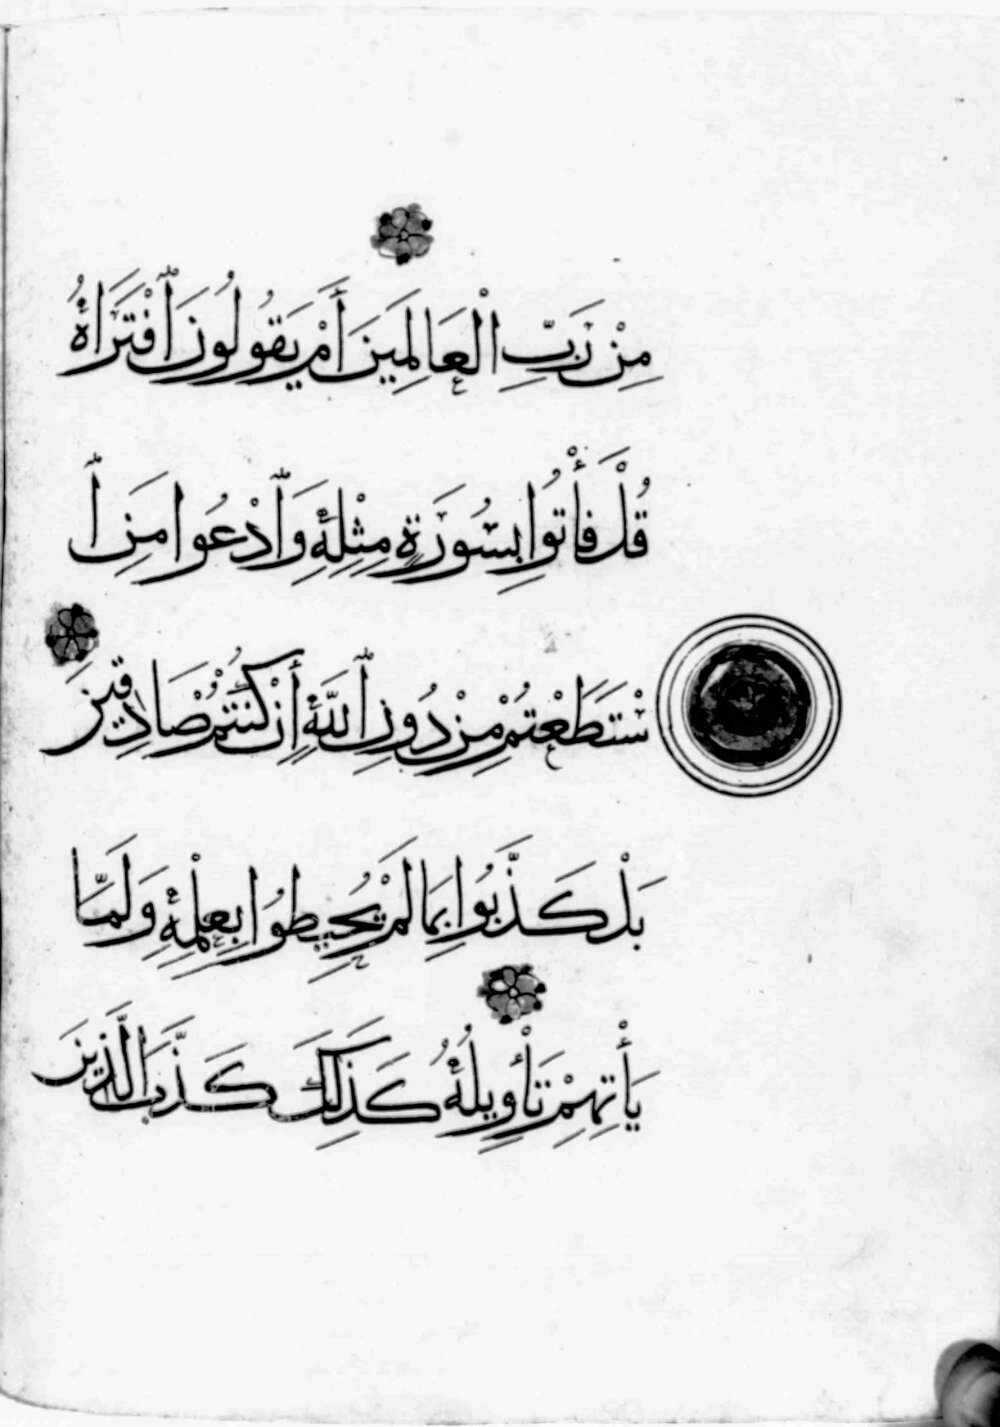 مِنْ رَبِّ الْعَالَمِينَ أَمْ يَقُولُونَ ٱفْتَرَاهُ
قُلْ فَأْتُوا بِسُورَةٍ مِثْلِهِ وَٱدْعُوا مَنِ ٱ
سْتَطَعْتُمْ مِنْ دُونِ ٱللَّهِ إِنْ كُنْتُمْ صَادِقِينَ
بَلْ كَذَّبُوا بِمَا لَمْ يُحِيطُوا بِعِلْمِهِ وَلَمَّا
يَأْتِهِمْ تَأْوِيلُهُ كَذَلِكَ كَذَّبَ الَّذِينَ